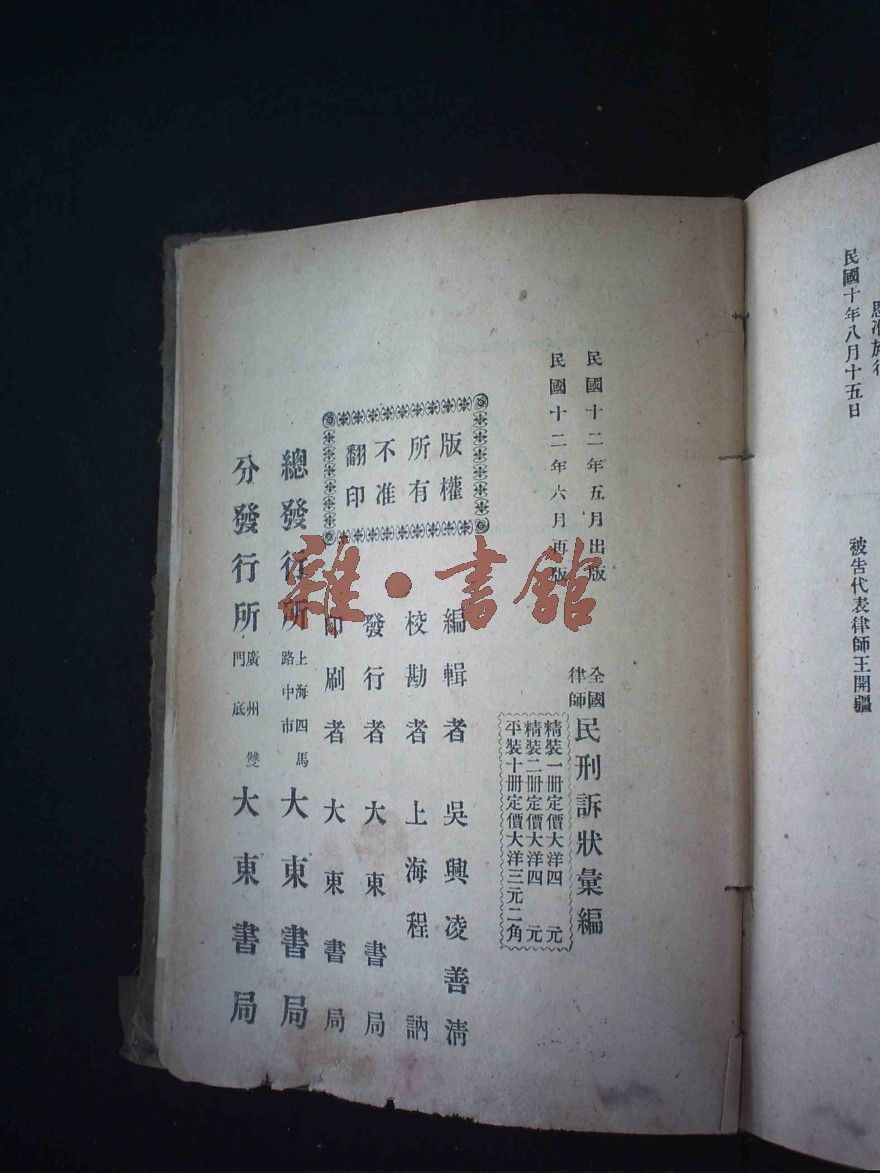 民國十年八月十五日
被告代表律師王開疆
民國十二年五月出版
民國十二年六月再版
全國律師
民刑訴狀彙編
精裝一冊定價大洋四元
精裝二冊定價大洋四元
平裝十冊定價大洋三元二角
版權
所有
不准
翻印
編輯者 吳興凌善清
校勘者 上海程訥
發行者 大東書局
印刷者 大東書局
總發行所 上海四馬路中市 大東書局
分發行所 廣州雙門底 大東書局
雜·書館